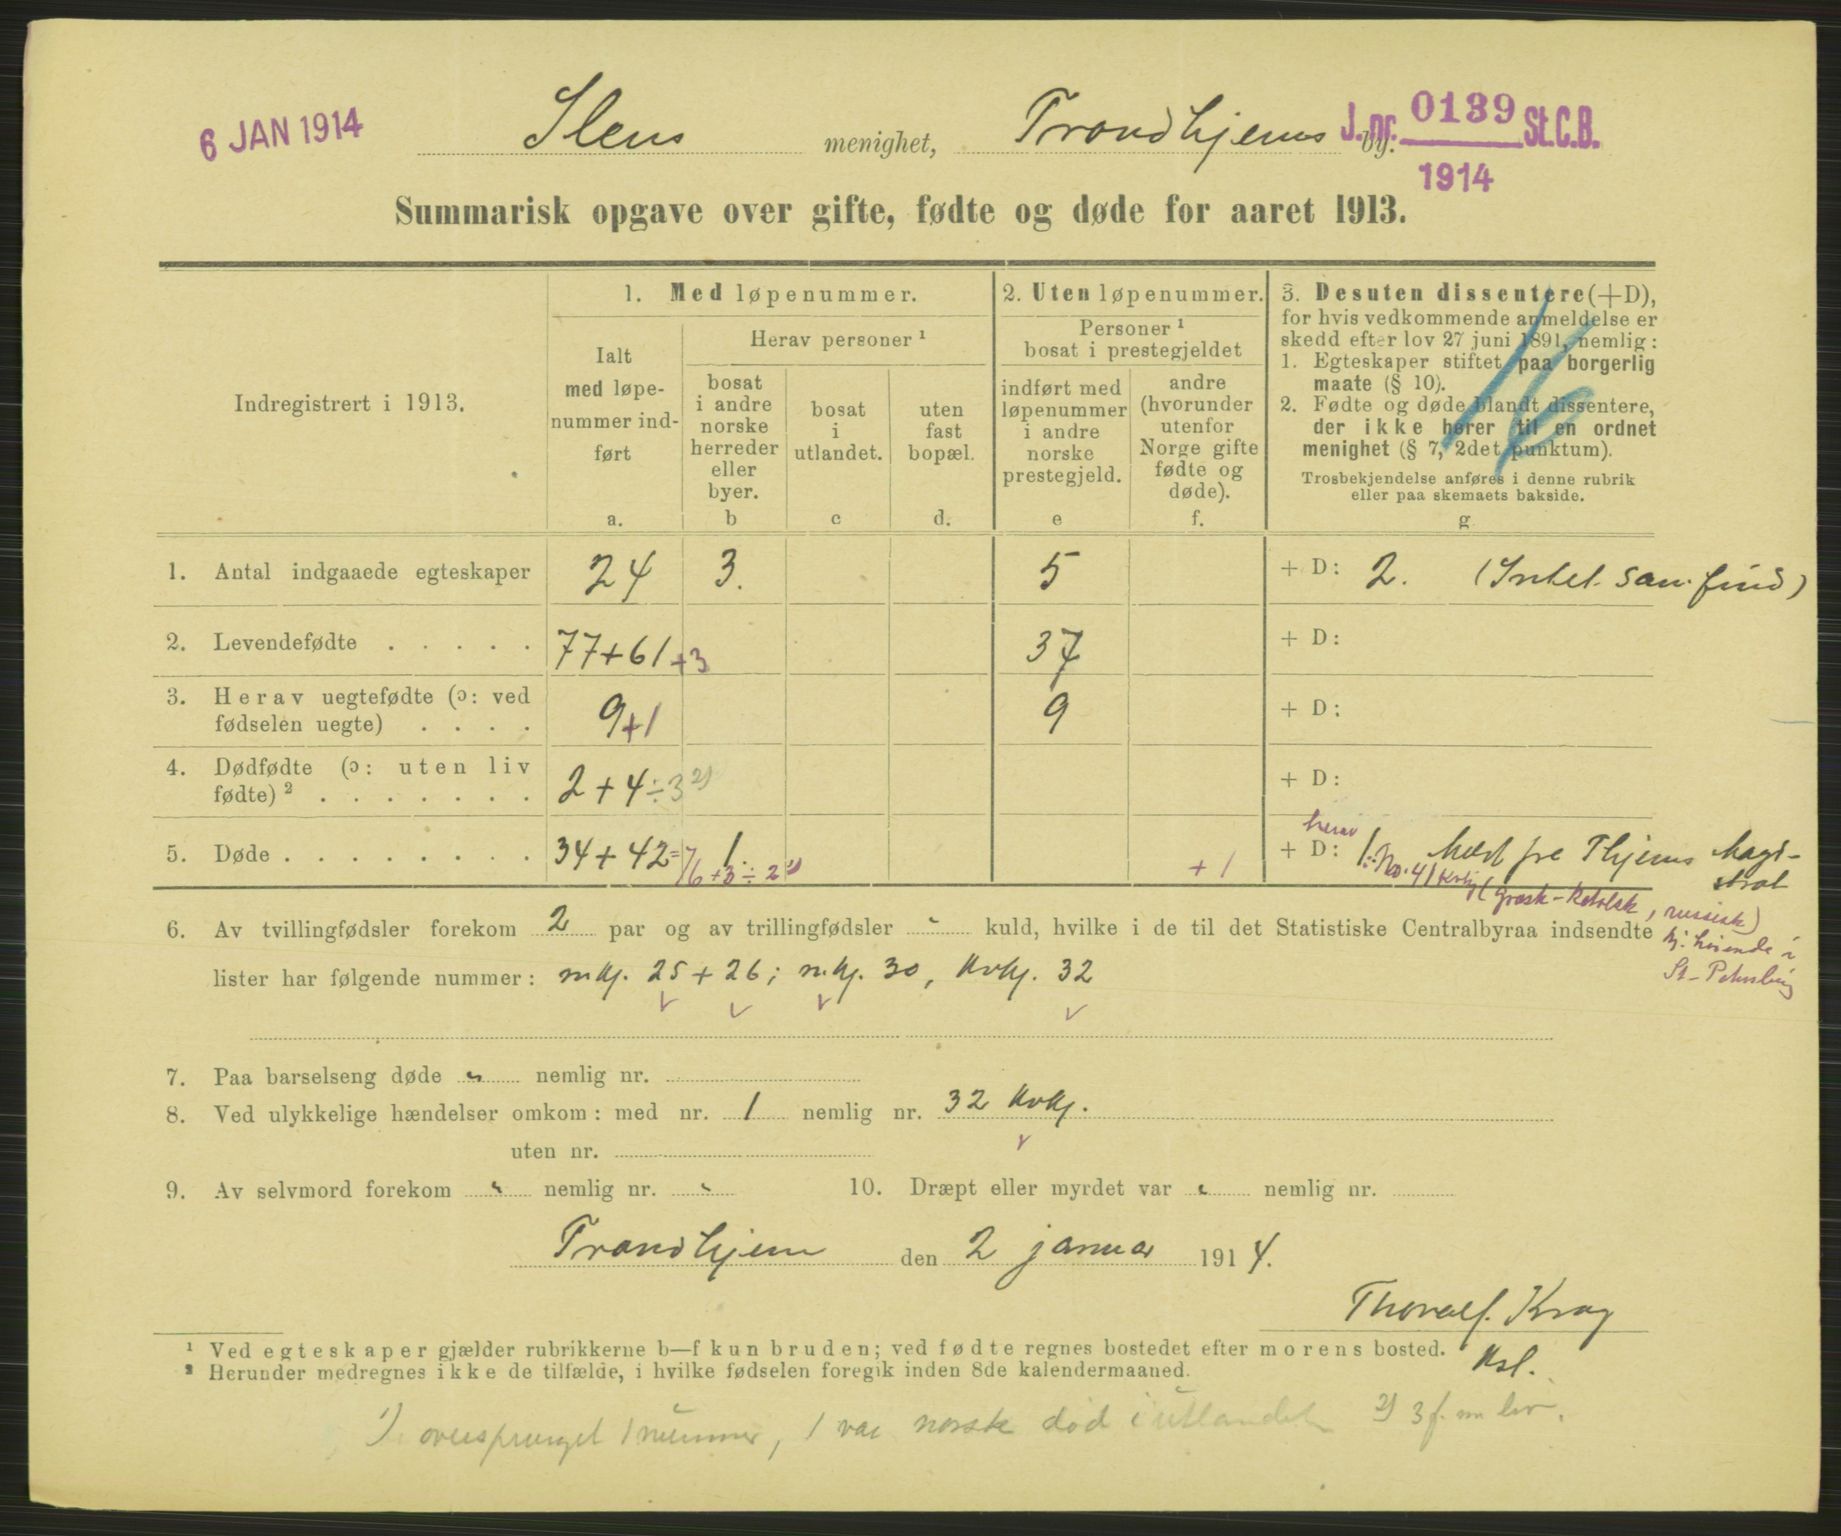 6 JAN 1914
Ilens menighet, Trondhjems by.
J. nr. 0139 St.C.B.
1914
Summarisk opgave over gifte, fødte og døde for aaret 1913.
Indregistrert i 1913.
1. Med løpenummer.
Ialt med løpenummer indført
a.
Herav personer ¹
bosat i andre norske herreder eller byer.
b
bosat i utlandet.
c
uten fast bopæl.
d.
2. Uten løpenummer.
Personer ¹ bosat i prestegjeldet
indført med løpenummer i andre norske prestegjeld.
e
andre (hvorunder utenfor Norge gifte fødte og døde).
f.
3. Desuten dissentere (+D),
for hvis vedkommende anmeldelse er
skedd efter lov 27 juni 1891, nemlig:
1. Egteskaper stiftet paa borgerlig
maate (§ 10).
2. Fødte og døde blandt dissentere,
der ikke hører til en ordnet
menighet (§ 7, 2det punktum).
Trosbekjendelse anføres i denne rubrik
eller paa skemaets bakside.
g
16
1. Antal indgaaede egteskaper 24 3. 5 + D: 2.
2. Levendefødte . . . . . 77+61+3 37 + D:
3. Herav uegtefødte (ɔ: ved
fødselen uegte) . . . . 9+1 9 + D:
4. Dødfødte (ɔ: uten liv
fødte) ² . . . . . . . 2+4÷3 2) + D:
5. Døde . . . . . . . . 34+42=76+3÷2 1) 1 +1 + D: herav 1
No. 41 Kvkj (græsk-katolsk, russisk)
6. Av tvillingfødsler forekom 2 par og av trillingfødsler - kuld, hvilke i de til det Statistiske Centralbyraa indsendte
lister har følgende nummer: mkj. 25 + 26; mkj. 30, Kvkj. 32
7. Paa barselseng døde " nemlig nr.
8. Ved ulykkelige hændelser omkom: med nr. 1 nemlig nr. 32 Kvkj.
uten nr.
9. Av selvmord forekom " nemlig nr. " 10. Dræpt eller myrdet var " nemlig nr.
Trondhjem den 2 januar 1914.
Thoralf Krag
Ksl.
¹ Ved egteskaper gjælder rubrikkerne b—f kun bruden; ved fødte regnes bostedet efter morens bosted.
² Herunder medregnes ikke de tilfælde, i hvilke fødselen foregik inden 8de kalendermaaned.
1) oversprunget 1 nummer, 1 var norsk død i utlandet 2) 3 f. m liv.